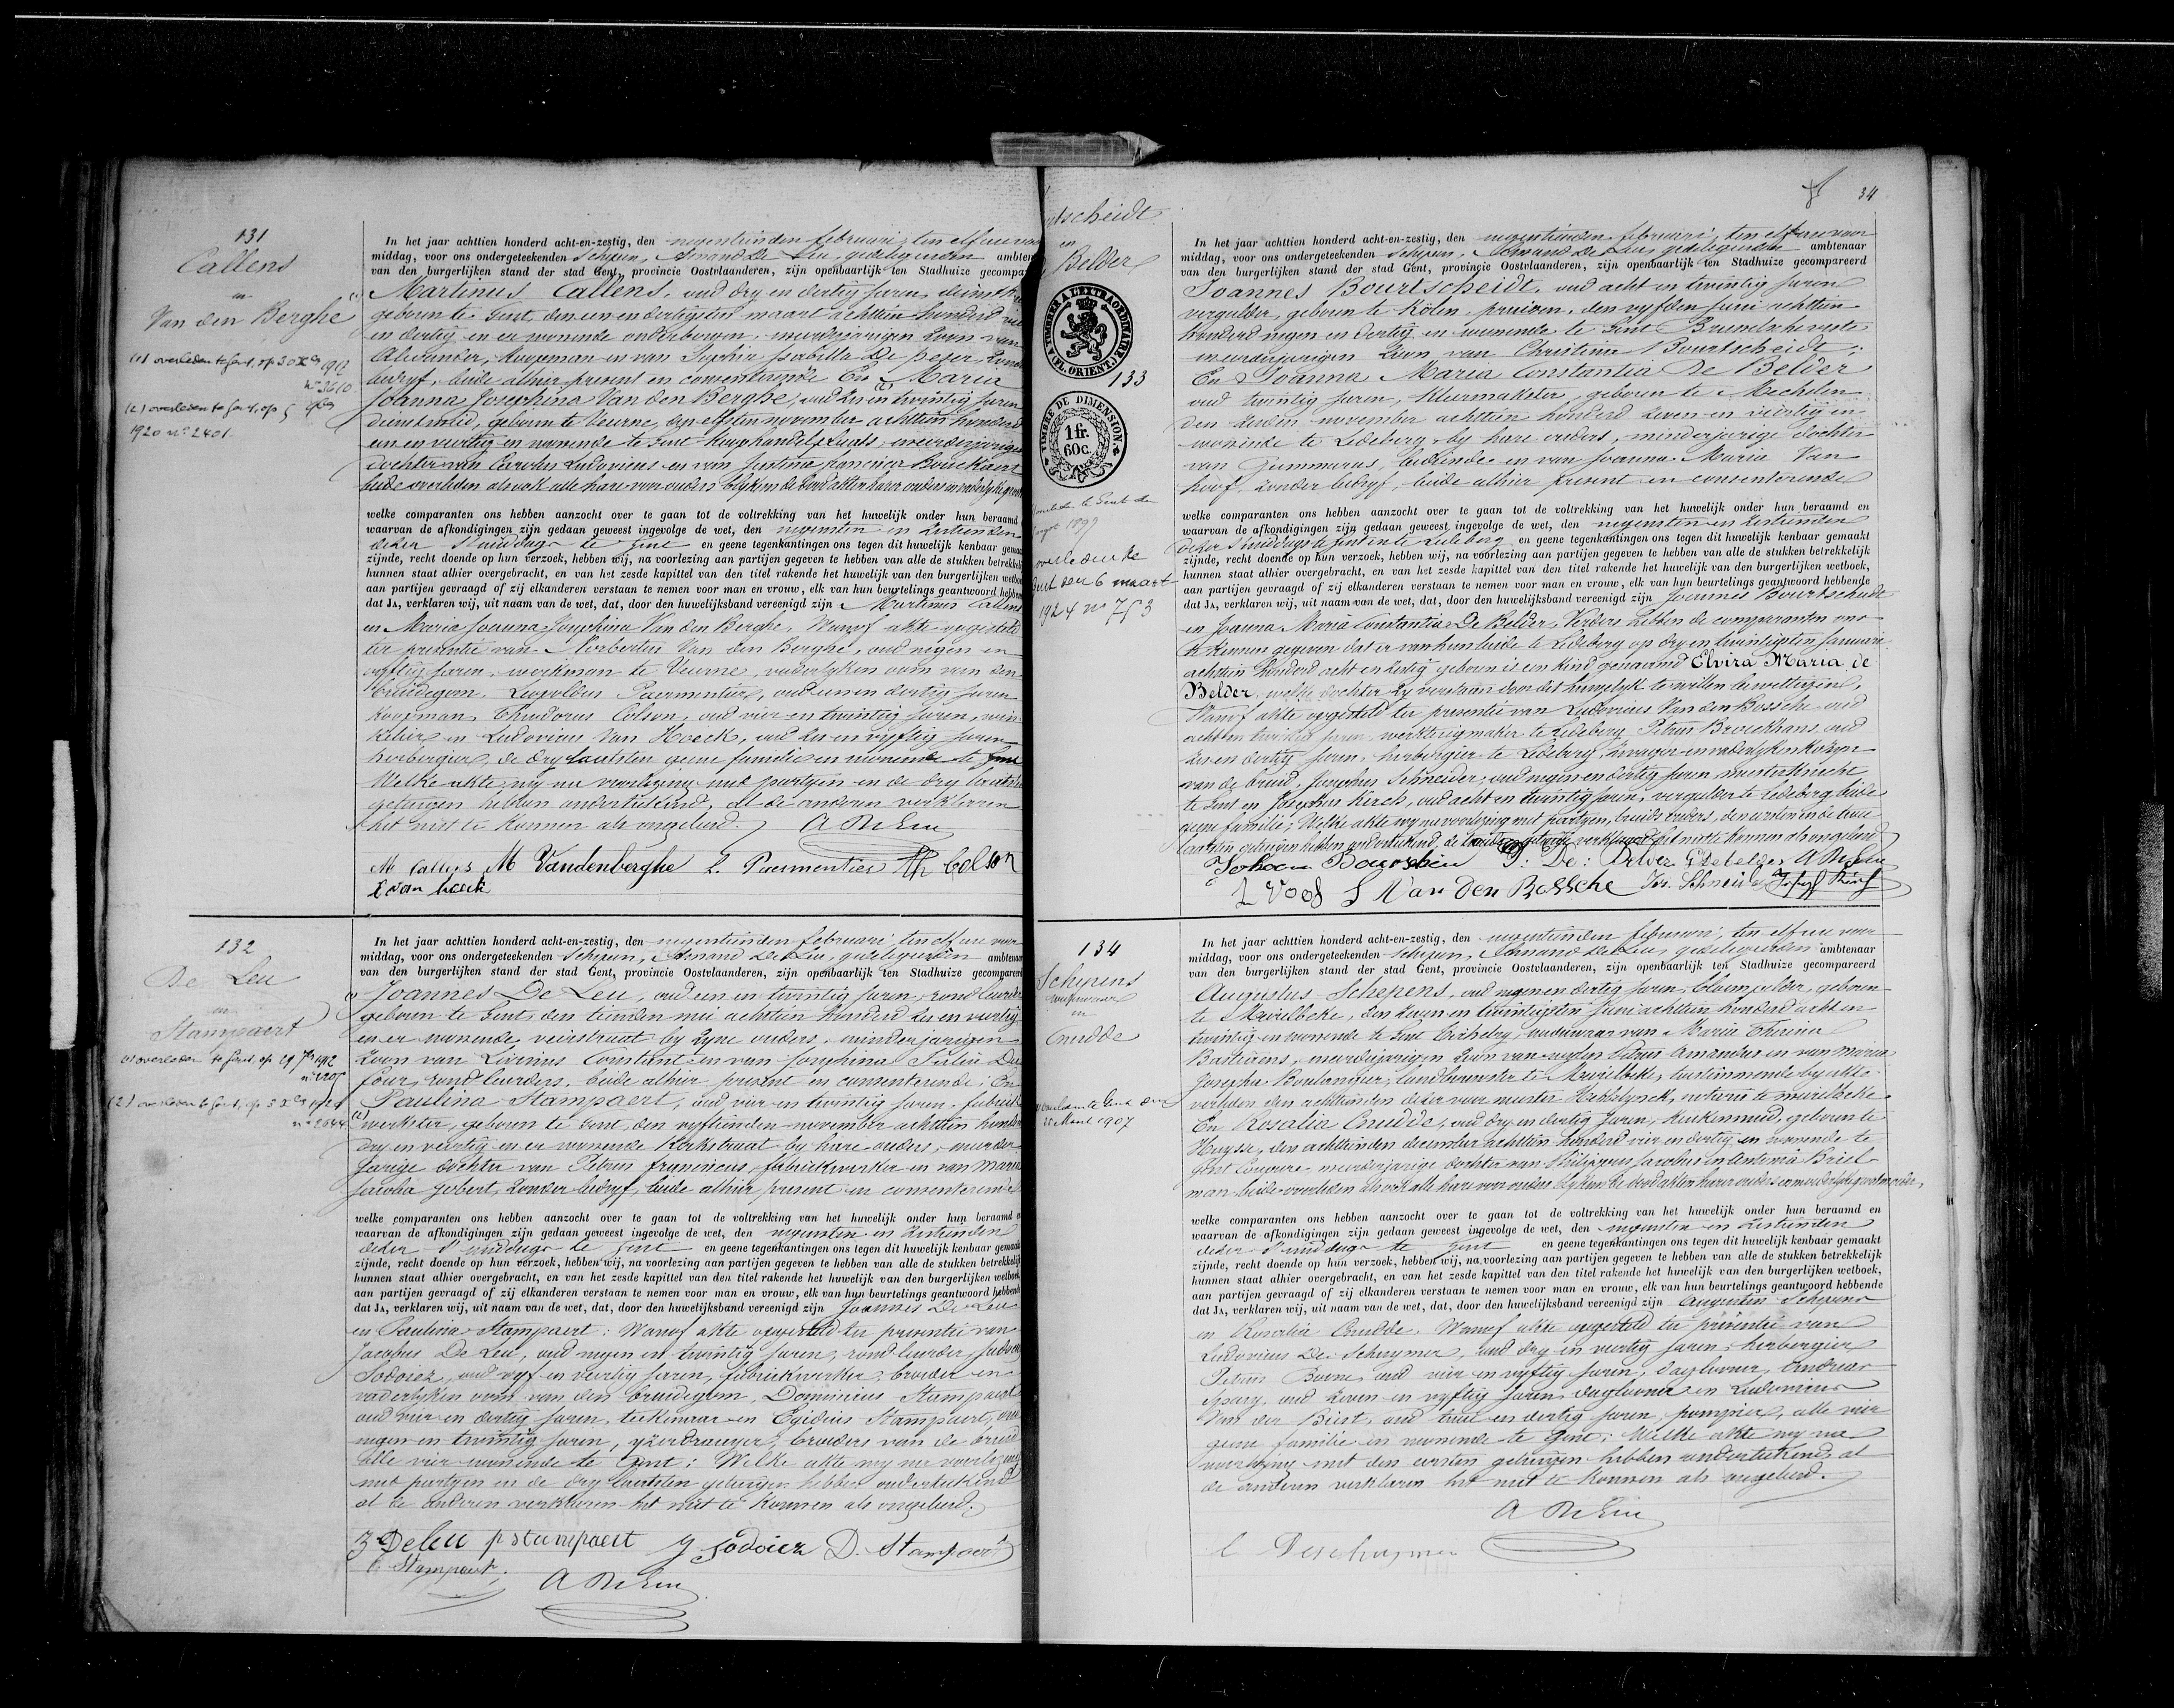 131
Callens
en
Van den Berghe
(1) overleden te Gent, op 30 Xbr 1912
n° 3610
(2) overleden te Gent, op 5
1920 n° 2401
In het jaar achttien honderd acht-en-zestig, den negentienden februari, ten elf ure voor
middag, voor ons ondergeteekenden Schepen, Armand De Leu, gedelegeerden ambten
van den burgerlijken stand der stad Gent, provincie Oostvlaanderen, zijn openbaarlijk ten Stadhuize gecompa
(1) Martinus Callens, oud dry en dertig jaren, dienstkn
geboren te Gent, den een en dertigsten maart achttien honderd vier
en dertig en er wonende onderbergen, meerderjarigen zoon van
Alexander, koopman en van Sophia Isabella De Peser, zonder
bedryf, beide alhier present en consenterende En (2) Maria
Joanna Josephina Van den Berghe, oud zes en twintig jaren
dienstmeid, geboren te Veurne, den elfsten november achttien honderd
een en veertig en wonende te Gent Kuyphandelplaats, meerderjarige
dochter van Carolus Ludovicus en van Justina Francisca Bouckaert
beide overleden als ook alle hare voorouders blykens de dood akten harer ouders en vaderlyke groot
welke comparanten ons hebben aanzocht over te gaan tot de voltrekking van het huwelijk onder hun beraamd
waarvan de afkondigingen zijn gedaan geweest ingevolge de wet, den negensten en zestienden
dezer 's middags te Gent en geene tegenkantingen ons tegen dit huwelijk kenbaar gemaa
zijnde, recht doende op hun verzoek, hebben wij, na voorlezing aan partijen gegeven te hebben van alle de stukken betrekkelij
hunnen staat alhier overgebracht, en van het zesde kapittel van den titel rakende het huwelijk van den burgerlijken wetboe
aan partijen gevraagd of zij elkanderen verstaan te nemen voor man en vrouw, elk van hun beurtelings geantwoord hebben
dat JA, verklaren wij, uit naam van de wet, dat, door den huwelijksband vereenigd zijn Martinus Callens
en Maria Joanna Josephina Van den Berghe, Wanof akte opgesteld
ter presentie van Norbertus Van den Berghe, oud negen en
vyftig jaren, werkman te Veurne, vaderlyken oom van den
bruidegom, Leopoldus Paermentier, oud een en dertig jaren
koopman, Theodorus Colson, oud vier en twintig jaren, win
kelier en Ludovicus Van Hoeck, oud zes en vyftig jaren
herbergier, de dry laatsten geene familie en wonende te Gent
Welke akte wy na voorlezing met partyen en de dry laatsten
getuigen hebben onderteekend, al de anderen verklaren
het niet te konnen als ongeleerd. A De Leu
M Callens M Vandenberghe L. Paermentier Th Colson
L van hoeck
132
De Leu
en
Stampaert
(1) overleden te Gent op 29 7bre 1912
n° 2205
(2) overleden te Gent, op 3 Xbr 1921
n° 2644
In het jaar achttien honderd acht-en-zestig, den negentienden februari, ten elf ure voor
middag, voor ons ondergeteekenden Schepen, Armand De Leu, gedelegeerden ambtenaar
van den burgerlijken stand der stad Gent, provincie Oostvlaanderen, zijn openbaarlijk ten Stadhuize gecompareerd
(1) Joannes De Leu, oud een en twintig jaren, rondleurder
geboren te Gent, den tienden mei achttien honderd zes en veertig
en er wonende, veirstraat by zyne ouders, minderjarigen
zoon van Livinus Constant en van Josephina Julia Du
four, rondleurders, beide alhier present en consenterende; En
Paulina Stampaert, oud vier en twintig jaren, fabriek
(2) werkster, geboren te Gent, den vyftienden november achttien honderd
dry en veertig en er wonende Kerkstraat by hare ouders, meerder
jarige dochter van Petrus Franciscus, fabriekwerker en van Maria
Jacoba Gobert, zonder bedryf, beide alhier present en consenterende
welke comparanten ons hebben aanzocht over te gaan tot de voltrekking van het huwelijk onder hun beraamd en
waarvan de afkondigingen zijn gedaan geweest ingevolge de wet, den negensten en zestienden
dezer 's middags te Gent en geene tegenkantingen ons tegen dit huwelijk kenbaar gemaakt
zijnde, recht doende op hun verzoek, hebben wij, na voorlezing aan partijen gegeven te hebben van alle de stukken betrekkelijk
hunnen staat alhier overgebracht, en van het zesde kapittel van den titel rakende het huwelijk van den burgerlijken wetboek
aan partijen gevraagd of zij elkanderen verstaan te nemen voor man en vrouw, elk van hun beurtelings geantwoord hebbende
dat JA, verklaren wij, uit naam van de wet, dat, door den huwelijksband vereenigd zijn Joannes De Leu
en Paulina Stampaert: Wanof akte opgesteld ter presentie van
Jacobus De Leu, oud negen en twintig jaren, rondleurder, Judocus
Sodoiez, oud vyf en veertig jaren, fabriekwerker, broeder en
vaderlyken oom van den bruidegom, Dominicus Stampaert
oud vier en dertig jaren, teekenaar en Egidius Stampaert, oud
negen en twintig jaren, yzerdraeyer, broeders van de bruid
alle vier wonende te Gent: Welke akte wy na voorlezing
met partyen en de dry laatsten getuigen hebben onderteekend
al de anderen verklaren het niet te konnen als ongeleerd.
J Deleu p stampaert J Sodoiez D. Stampaert
E Stampaert.
A De Leu
34
rtscheidt
en
Belder
TIMBRE A L'EXTRAORDINAIRE (FL. ORIENT.)
133
TIMBRE DE DIMENSION.
1 fr.
60 c.
overleden te Gent den
1899
overleden te
Gent den 6 maart
1924 n° 753
In het jaar achttien honderd acht-en-zestig, den negentienden februari, ten elf ure voor
middag, voor ons ondergeteekenden Schepen, Armand De Leu, gedelegeerden ambtenaar
van den burgerlijken stand der stad Gent, provincie Oostvlaanderen, zijn openbaarlijk ten Stadhuize gecompareerd
Joannes Bourtscheidt, oud acht en twintig jaren
vergulder, geboren te Kölen, pruisen, den vyfden juni achttien
honderd negen en dertig en wonende te Gent Brusselschevests
meerderjarigen zoon van Christina Bourtscheidt;
En Joanna Maria Constantia De Belder
oud twintig jaren, kleermakster, geboren te Mechelen
den zesden november achttien honderd zeven en veertig en
wonende te Ledeberg, by hare ouders, minderjarige dochter
van Gummarus, bediende en van Joanna Maria Van
hoof, zonder bedryf, beide alhier present en consenterende
welke comparanten ons hebben aanzocht over te gaan tot de voltrekking van het huwelijk onder hun beraamd en
waarvan de afkondigingen zijn gedaan geweest ingevolge de wet, den negensten en zestienden
dezer 's middags te Gent en te Ledeberg en geene tegenkantingen ons tegen dit huwelijk kenbaar gemaakt
zijnde, recht doende op hun verzoek, hebben wij, na voorlezing aan partijen gegeven te hebben van alle de stukken betrekkelijk
hunnen staat alhier overgebracht, en van het zesde kapittel van den titel rakende het huwelijk van den burgerlijken wetboek,
aan partijen gevraagd of zij elkanderen verstaan te nemen voor man en vrouw, elk van hun beurtelings geantwoord hebbende
dat JA, verklaren wij, uit naam van de wet, dat, door den huwelijksband vereenigd zijn Joannes Bourtscheidt
en Joanna Maria Constantia De Belder, Verders hebben de comparanten ons
te kennen gegeven dat er van hun beide te Ledeberg op dry en twintigsten januari
achttien honderd acht en zestig geboren is een kind genaamd Elvira Maria de
Belder, welke dochter zy verstaan door dit huwelyk te willen bewettigen,
Wanof akte opgesteld ter presentie van Ludovicus Van den Bossche oud
achtien twintig jaren, werktuigmaker te Ledeberg, Petrus Broeckhans, oud
zes en dertig jaren, herbergier te Ledeberg, zwager en vaderlyken kozyn
van de bruid, Josephus Schneider, oud negen en dertig jaren, meesterknecht
te Gent en Josephus Kirch, oud acht en twintig jaren, vergulder te Ledeberg beide
geene familie; Welke akte wy na voorlezing met partyen, bruids ouders, den eersten en de twee
laatsten getuigen hebben onderteekend, de tweeden getuige verklarende het niet te konnen als ongeleerd
Johann De: Belder G Debelder A De Leu
J Voof L Van Den Bossche Jos. Schneider Josef Kirch
134
Schepens
weduwnaar
en
Cnudde
overleden te Gent den
22 Maart 1907
In het jaar achttien honderd acht-en-zestig, den negentienden februari, ten elf ure voor
middag, voor ons ondergeteekenden Schepen, Armand De Leu, gedelegeerden ambtenaar
van den burgerlijken stand der stad Gent, provincie Oostvlaanderen, zijn openbaarlijk ten Stadhuize gecompareerd
Augustus Schepens, oud negen en dertig jaren, bloempelder, geboren
te Meirelbeke, den zeven en twintigsten juni achttien honderd acht en
twintig en wonende te Gent Eickelry, weduwnaar van Maria Theresia
Bastiaens, meerderjarigen zoon van wylen Petrus Amandus en van Maria
Josepha Boulangier, landbouwster te Meirelbeke, toestemmende by akte
verleden den achttienden dezer voor meester Hebbelynck, notaris te Meirelbeke
En Rosalia Cnudde, oud dry en dertig jaren, keukenmeid, geboren te
Huysse, den achttienden december achttien honderd vier en dertig en wonende te
Gent Couvure, meerderjarige dochter van Philippus Jacobus en Antonia Briel
man beide overleden als ook alle hare voorouders blykens de dood akten harer ouders en moederlyke grootmoeder,
welke comparanten ons hebben aanzocht over te gaan tot de voltrekking van het huwelijk onder hun beraamd en
waarvan de afkondigingen zijn gedaan geweest ingevolge de wet, den negensten en zestienden
dezer 's middags te Gent en geene tegenkantingen ons tegen dit huwelijk kenbaar gemaakt
zijnde, recht doende op hun verzoek, hebben wij, na voorlezing aan partijen gegeven te hebben van alle de stukken betrekkelijk
hunnen staat alhier overgebracht, en van het zesde kapittel van den titel rakende het huwelijk van den burgerlijken wetboek,
aan partijen gevraagd of zij elkanderen verstaan te nemen voor man en vrouw, elk van hun beurtelings geantwoord hebbende
dat JA, verklaren wij, uit naam van de wet, dat, door den huwelijksband vereenigd zijn Augustus Schepens
en Rosalia Cnudde, Wanof akte opgesteld ter presentie van
Ludovicus De Schuymer, oud dry en veertig jaren, herbergier
Petrus Boone, oud vier en vyftig jaren, daglooner, Andreas
oud zeven en vyftig jaren, daglooner en Ludovicus
Van der Biest, oud twee en dertig jaren, pompier, alle vier
geene familie en wonende te Gent: Welke akte wy na
voorlezing met den eersten getuigen hebben onderteekend al
de anderen verklaren het niet te konnen als ongeleerd.
A De Leu
L Deschuymer